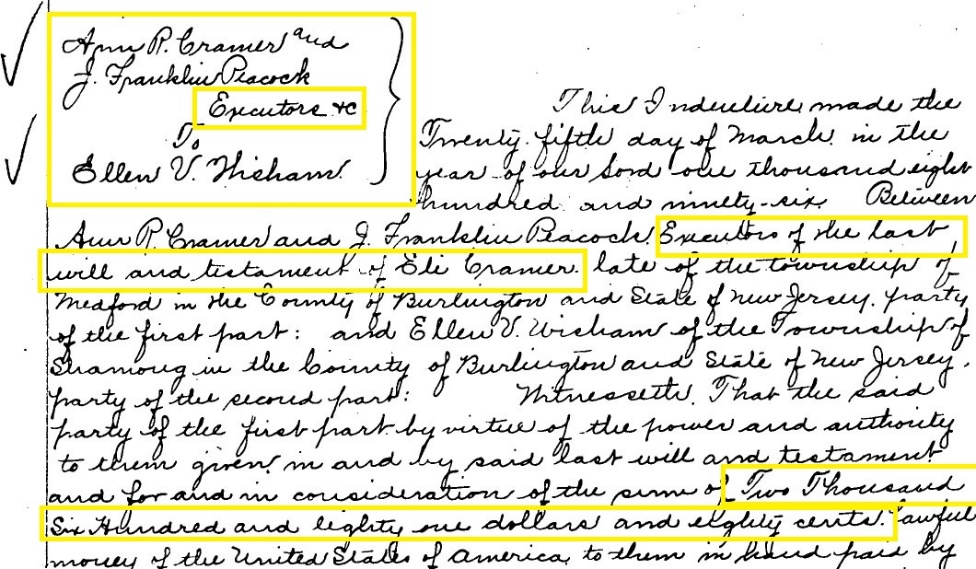 Ann P. Cramer and
J. Franklin Peacock
Executors &c
To
Ellen V. Wisham
This Indenture made the
Twenty fifth day of March in the
year of our Lord one thousand eight
hundred and ninety-six. Between
Ann P. Cramer and J. Franklin Peacock Executors of the last
will and testament of Eli Cramer late of the township of
Medford in the County of Burlington and State of New Jersey, party
of the first part: and Ellen V. Wisham of the Township of
Shamong in the County of Burlington and State of New Jersey,
party of the second part: Witnesseth. That the said
party of the first part by virtue of the power and authority
to them given in and by said last will and testament
and for and in consideration of the sum of Two Thousand
Six Hundred and eighty one dollars and eighty cents. lawful
money of the United States of America, to them in hand paid by